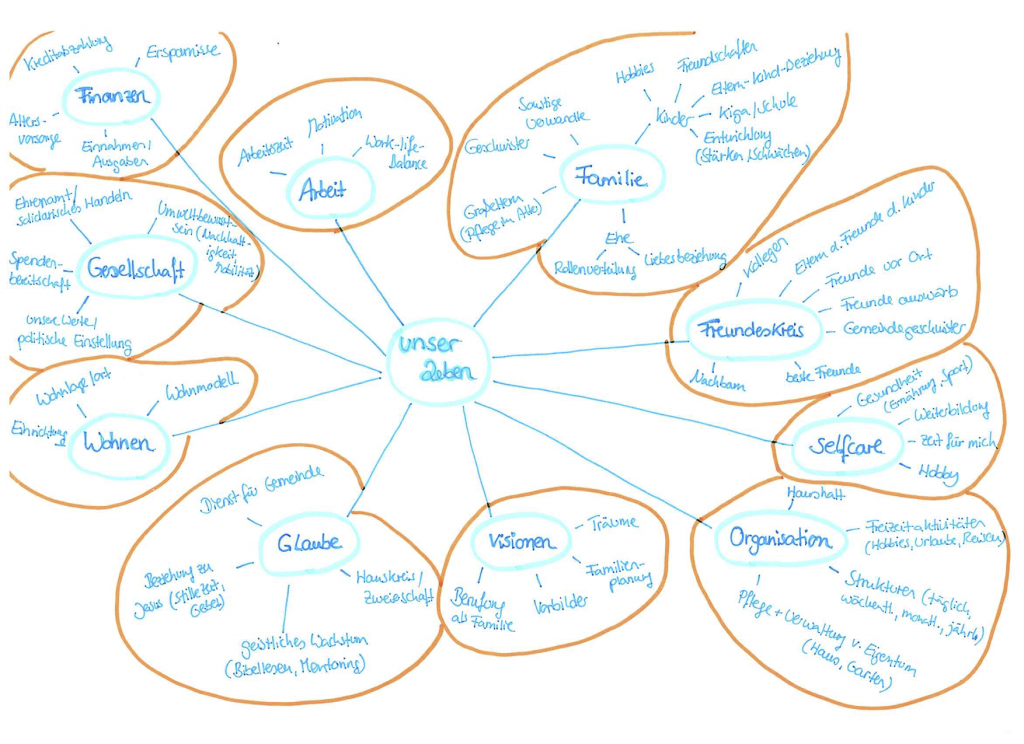 Kreditabzahlung
Ersparnisse
Finanzen
Alters-
vorsorge
Einnahmen/
Ausgaben
Motivation
Arbeitszeit
Work-life-
Balance
Arbeit
Hobbies
Freundschaften
Eltern-Kind-Beziehung
Kinder
Kiga/Schule
Entwicklung
(Stärken, Schwächen)
Sonstige
Verwandte
Geschwister
Familie
Großeltern
(Pflege im Alter)
Ehe
Rollenverteilung
Liebesbeziehung
Ehrenamt/
solidarisches Handeln
Umweltbewusst-
sein (Nachhalt-
igkeit,
Mobilität)
Spenden-
bereitschaft
Gesellschaft
unsere Werte/
politische Einstellung
Kollegen
Eltern d. Freunde d. Kinder
Freunde vor Ort
Freunde auswärts
Freundeskreis
Gemeindegeschwister
Nachbarn
beste Freunde
unser
Leben
Wohnlage/ort
Wohnmodell
Einrichtung
Wohnen
Gesundheit
(Ernährung, Sport)
Weiterbildung
Selfcare
Zeit für mich
Hobby
Dienst für Gemeinde
Glaube
Beziehung zu
Jesus (Stille Zeit,
Gebet)
Hauskreis/
Zweierschaft
geistliches Wachstum
(Bibellesen, Mentoring)
Träume
Visionen
Familien-
planung
Berufung
als Familie
Vorbilder
Haushalt
Organisation
Freizeitaktivitäten
(Hobbies, Urlaube, Reisen)
Strukturen (täglich,
wöchentl., monatl., jährl.)
Pflege + Verwaltung v. Eigentum
(Haus, Garten)